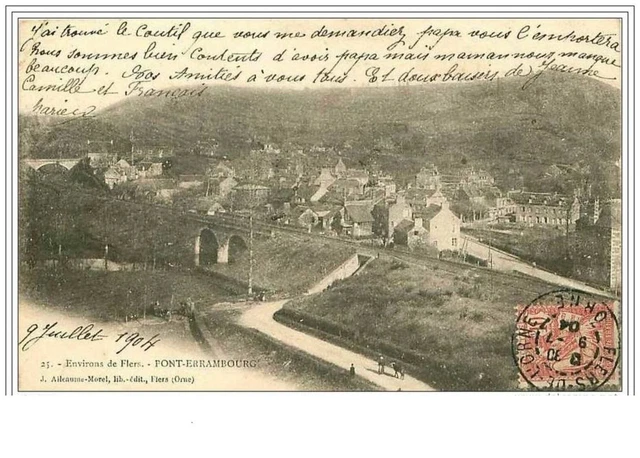 J'ai trouvé le Coutil que vous me demandiez, papa vous l'emportera
Nous sommes bien Contents d'avoir papa mais maman nous manque
beaucoup. Nos Amitiés à vous tous. Et doux baisers de Jeanne
Camille et François
9 Juillet 1904
25. - Environs de Flers. - PONT-ERRAMBOURG
J. Alleaume-Morel, lib.-édit., Flers (Orne)
FLERS-DE-L'ORNE
9 -7
04